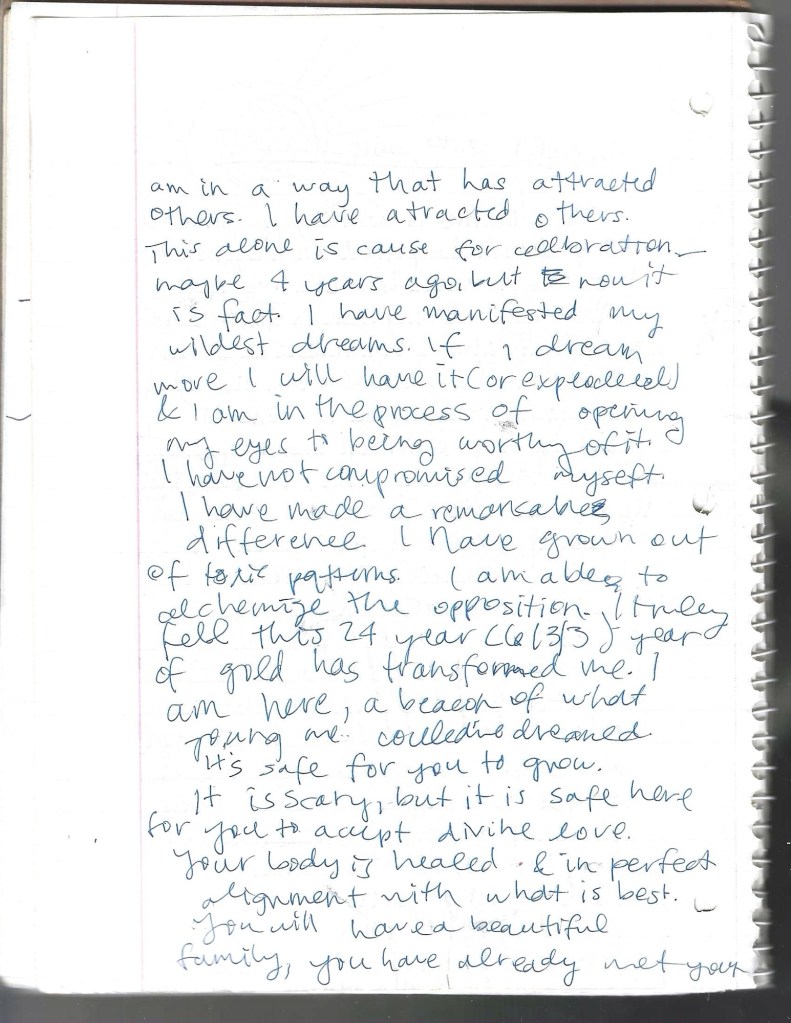 am in a way that has attracted
others. I have atracted others.
This alone is cause for cellbration
maybe 4 years ago, but now it
is fact. I have manifested my
wildest dreams. If I dream
more I will have it (or
& I am in the process of opening
my eyes to being worthy of it.
I have not compromised myself.
I have made a remarkable
difference I have grown out
of toxic patterns. I am able to
alchemize the opposition. I truley
fell this 24 year (6/3/3) year
of gold has transformed me. I
am here, a beacon of what
young me could've dreamed.
It's safe for you to grow.
It is scary, but it is safe here
for you to accept divine love.
Your body is healed & in perfect
alignment with what is best.
You will have a beautiful
family, you have already met your